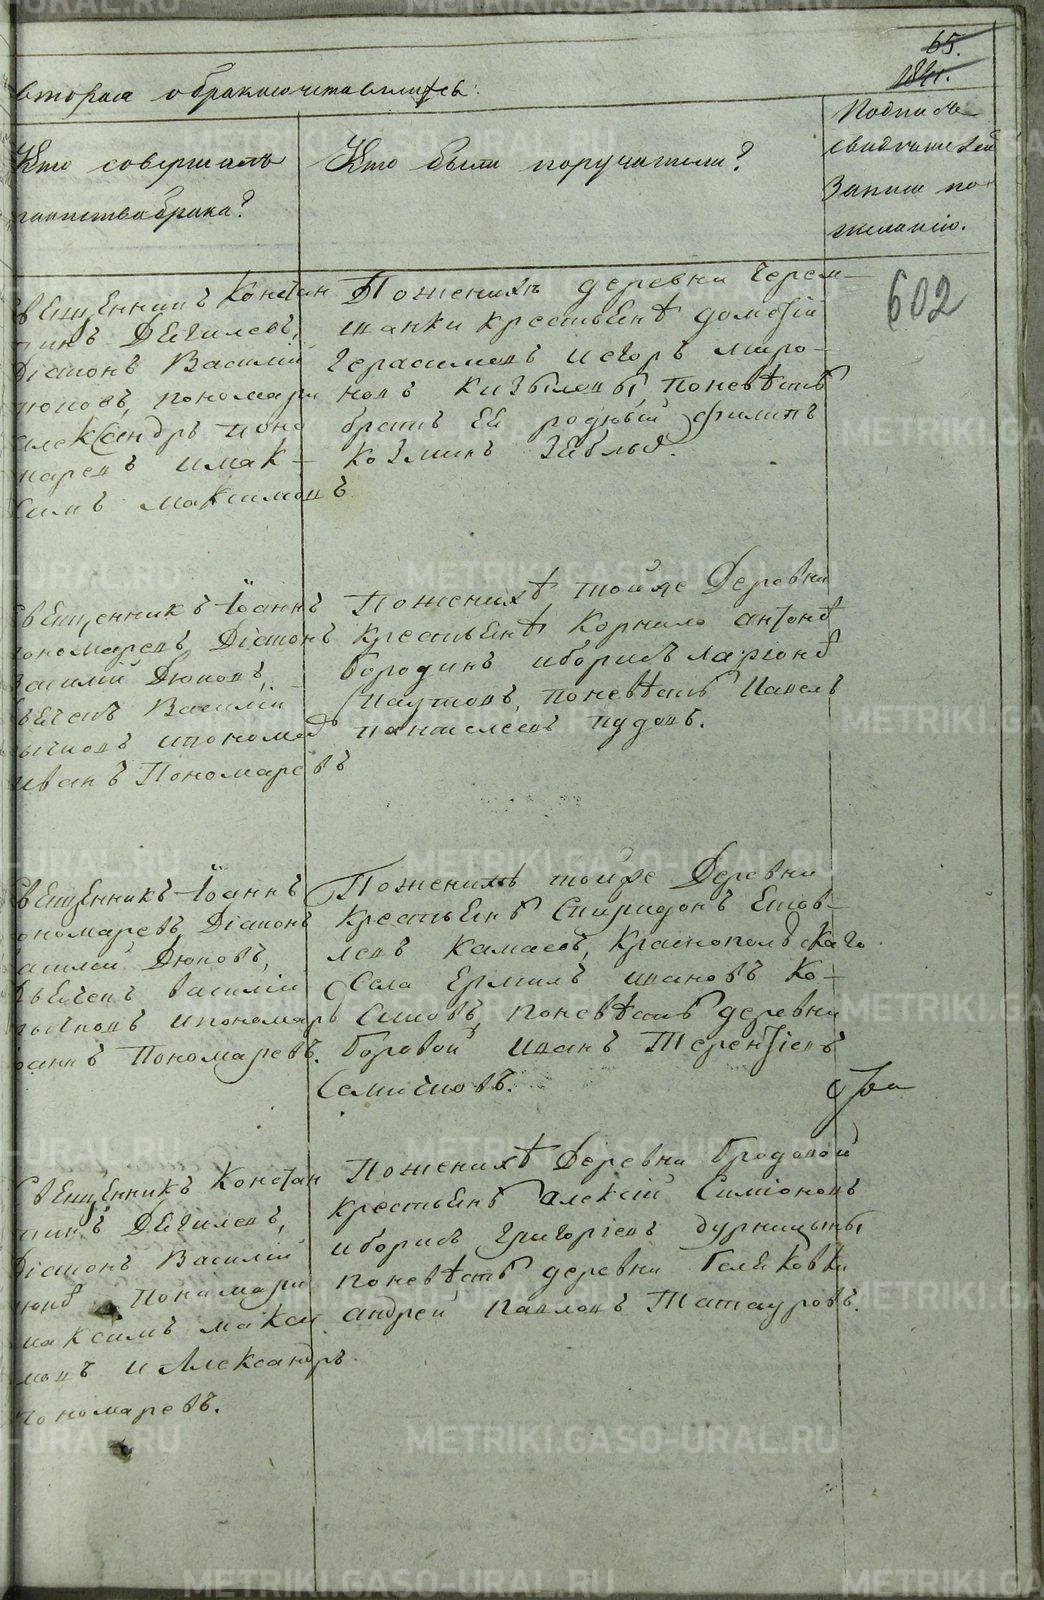 65.
вторая о бракосочетавшихся.
Кто совершалъ
таинства брака?
Кто были поручители?
Подпись
свидетелей
Записи по
желанію.
602
Священникъ Констан
тинъ Дягилевъ,
Діаконъ Василий
Дюковъ, пономари
Александръ Поно
маревъ и Мак-
симъ Максимовъ
По женихѣ деревни Черем-
шанки крестьянѣ Дометій
Герасимовъ и Егоръ Миро-
новъ Кизиловы, по невѣстѣ
братъ ея родный Филипъ
Козминъ Зяблый.
Священникъ Іоаннъ
Пономаревъ, Діаконъ
Василій Дюковъ,
Дьячекъ Василій
и пономарь
Иванъ Пономаревъ
По женихѣ тойже Деревни
крестьянѣ Корнило Антоновъ
Бородинъ и Борисъ Ларіоновъ
Паутовъ, по невѣстѣ Павелъ
Пантелеевъ Пудовъ.
Священникъ Іоаннъ
Пономаревъ, Діаконъ
Василей Дюковъ,
Дьячекъ Василій
и пономарь
Іоаннъ Пономаревъ.
По женихѣ тойже Деревни
крестьянѣ Спиридонъ Еков-
левъ Камаевъ, Краснопольскаго
Села Ермилъ Ивановъ Ко-
совъ, по невѣстѣ деревни
Боровой Иванъ Терентіевъ
Семячковъ.
Священникъ Констан
тинъ Дягилевъ,
Діаконъ Василій
Дюковъ, Пономари
Максимъ Макси
мовъ и Александръ
Пономаревъ.
По женихѣ Деревни Бродовой
крестьянѣ Алексій Симіоновъ
и Борисъ Григоріевъ Дурницыны
по невѣстѣ деревни Беляковки
Андрей Павловъ Татауровъ.
METRIKI.GASO-URAL.RU